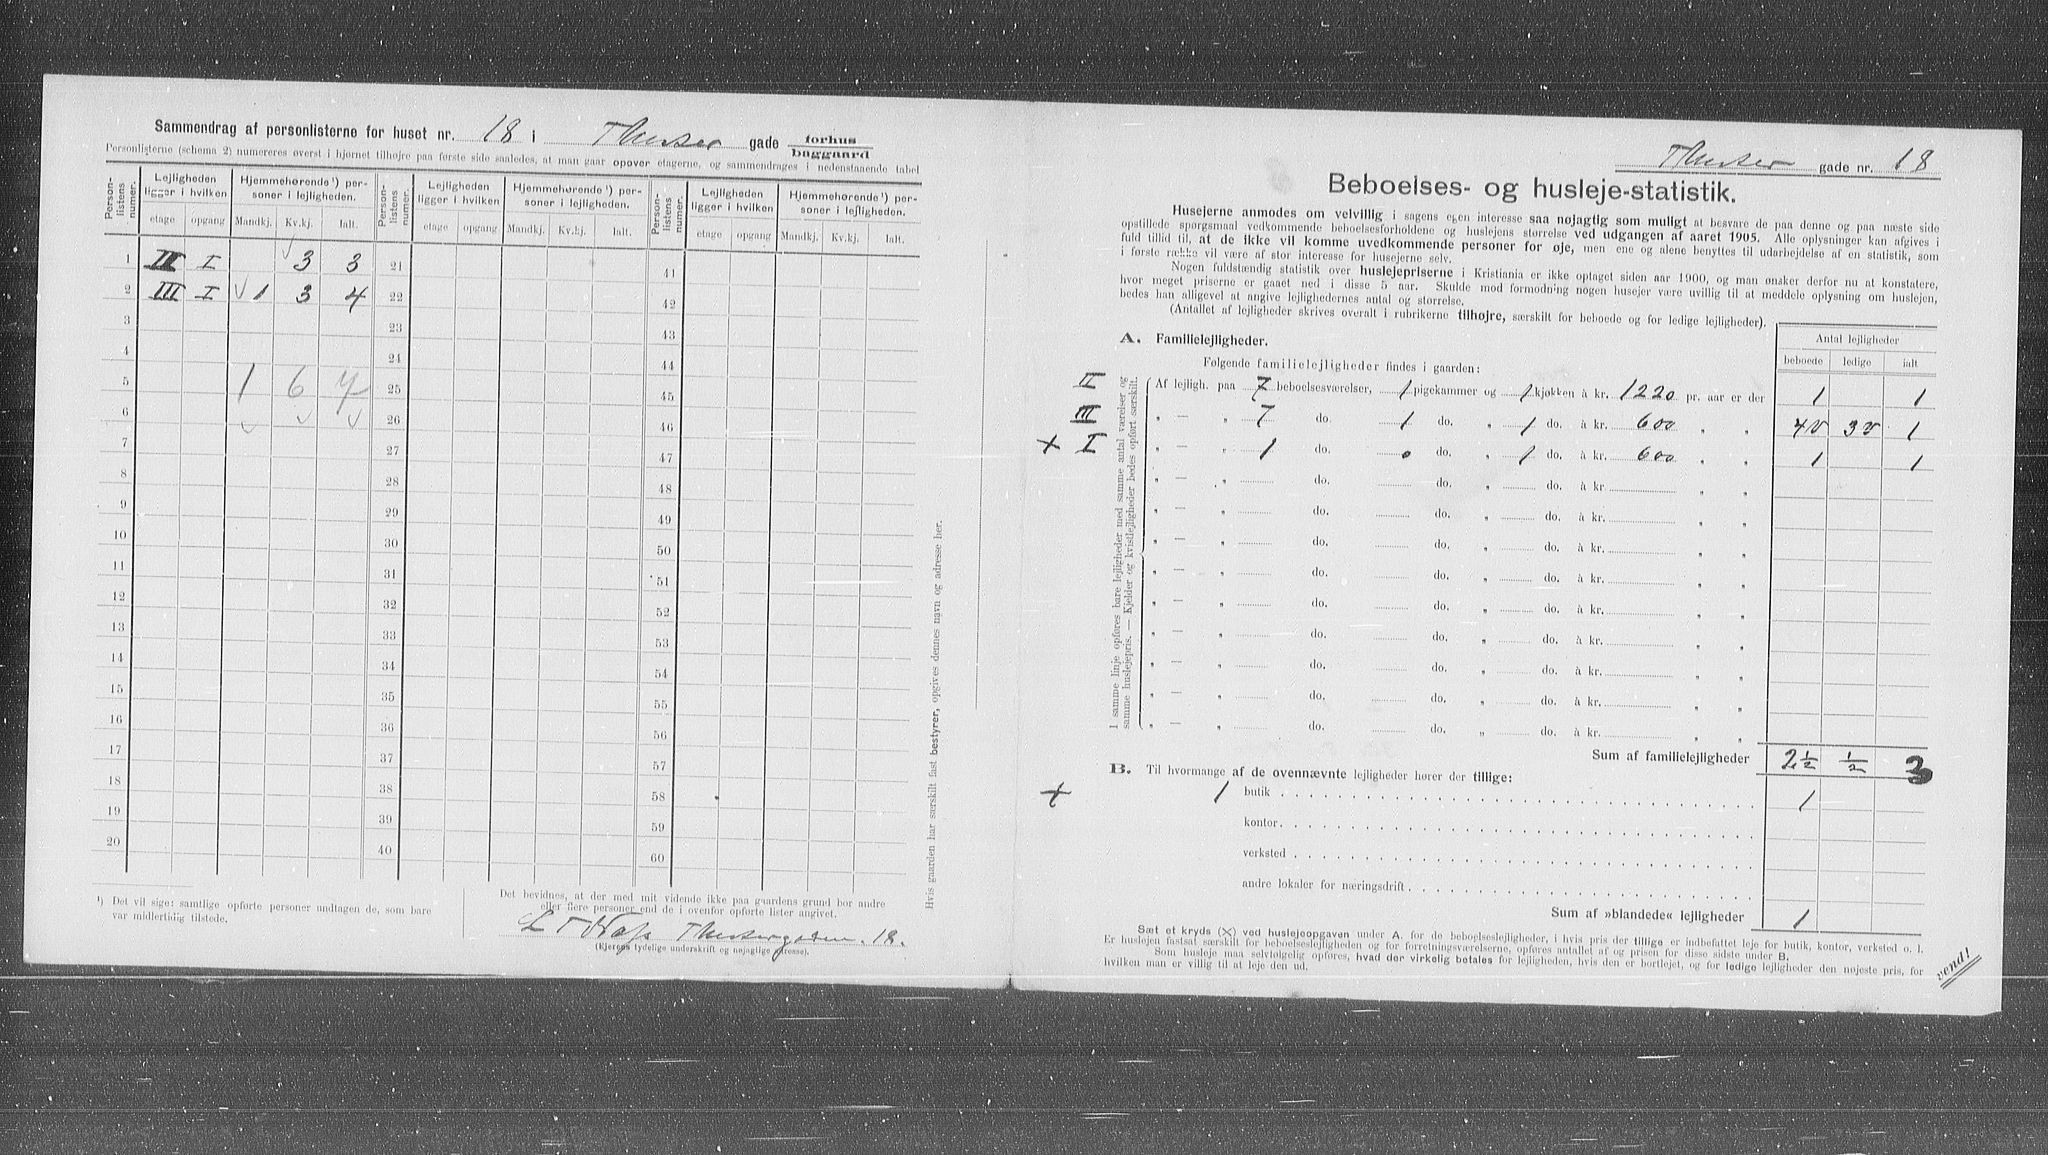 Sammendrag af personlisterne for huset nr. 18 i gade forhus baggaard
Personlisterne (schema 2) numereres øverst i hjørnet tilhøjre paa første side saaledes, at man gaar opover etagerne, og sammendrages i nedenstaaende tabel
Person-listens numer. Lejligheden ligger i hvilken Hjemmehørende¹) personer i lejligheden. Person-listens numer. Lejligheden ligger i hvilken Hjemmehørende¹) personer i lejligheden. Person-listens numer. Lejligheden ligger i hvilken Hjemmehørende¹) personer i lejligheden.
etage opgang Mandkj. Kv.kj. Ialt. etage opgang Mandkj. Kv.kj. Ialt. etage opgang Mandkj. Kv.kj. Ialt.
1 II I 3 3 21 41
2 III I 1 3 4 22 42
3 23 43
4 24 44
5 1 6 7 25 45
6 26 46
7 27 47
8 28 48
9 29 49
10 30 50
11 31 51
12 32 52
13 33 53
14 34 54
15 35 55
16 36 56
17 37 57
18 38 58
19 39 59
20 40 60
Hvis gaarden har særskilt fast bestyrer, opgives dennes navn og adresse her.
¹) Det vil sige: samtlige opførte personer undtagen de, som bare
var midlertidig tilstede.
Det bevidnes, at der med mit vidende ikke paa gaardens grund bor andre
eller flere personer end de i ovenfor opførte lister angivet.
18.
(Ejerens tydelige underskrift og nøjaglige adresse).
gade nr. 18
Beboelses- og husleje-statistik.
Husejerne anmodes om velvillig i sagens egen interesse saa nøjagtig som muligt at besvare de paa denne og paa næste side
opstillede spørgsmaal vedkommende beboelsesforholdene og huslejens størrelse ved udgangen af aaret 1905. Alle oplysninger kan afgives i
fuld tillid til, at de ikke vil komme uvedkommende personer for øje, men ene og alene benyttes til udarbejdelse af en statistik, som
i første række vil være af stor interesse for husejerne selv.
Nogen fuldstændig statistik over huslejepriserne i Kristiania er ikke optaget siden aar 1900, og man ønsker derfor nu at konstatere,
hvor meget priserne er gaaet ned i disse 5 aar. Skulde mod formodning nogen husejer være uvillig til at meddele oplysning om huslejen,
bedes han alligevel at angive lejlighedernes antal og størrelse.
(Antallet af lejligheder skrives overalt i rubrikerne tilhøjre, særskilt for beboede og for ledige lejligheder).
A. Familielejligheder.
Antal lejligheder
Følgende familielejligheder findes i gaarden:
beboede ledige ialt
I samme linje opføres bare lejligheder med samme antal værelser og
samme huslejepris. — Kjelder og kvistlejligheder bedes opført særskilt.
II Af lejligh. paa 7 beboelsesværelser, 1 pigekammer og 1 kjøkken à kr. 1220 pr. aar er der 1 1
III „ — „ 7 do. 1 do. „ 1 do. à kr. 600 „ „ 4v 3v 1
+ I „ — „ 1 do. 0 do. „ 1 do. à kr. 600 „ „ 1 1
„ — „ do. do. „ do. à kr. „ „
„ — „ do. do. „ do. à kr. „ „
„ — „ do. do. „ do. à kr. „ „
„ — „ do. do. „ do. à kr. „ „
„ — „ do. do. „ do. à kr. „ „
„ — „ do. do. „ do. à kr. „ „
„ — „ do. do. „ do. à kr. „ „
„ — „ do. do. „ do. à kr. „ „
„ — „ do. do. „ do. à kr. „ „
Sum af familielejligheder 2½ ½ 3
B. Til hvormange af de ovennævnte lejligheder hører der tillige:
+ 1 butik 1
kontor
verksted
andre lokaler for næringsdrift
Sum af »blandede« lejligheder 1
Sæt et kryds (×) ved huslejeopgaven under A. for de beboelseslejligheder, i hvis pris der tillige er indbefattet leje for butik, kontor, verksted o. l.
Er huslejen fastsat særskilt for beboelseslejligheden og for forretningsværelserne, opføres antallet af og prisen for disse sidste under B.
Som husleje maa selvfølgelig opføres, hvad der virkelig betales for lejligheden, hvis den er bortlejet, og for ledige lejligheder den nøjeste pris, for
hvilken man er villig til at leje den ud.
vend!